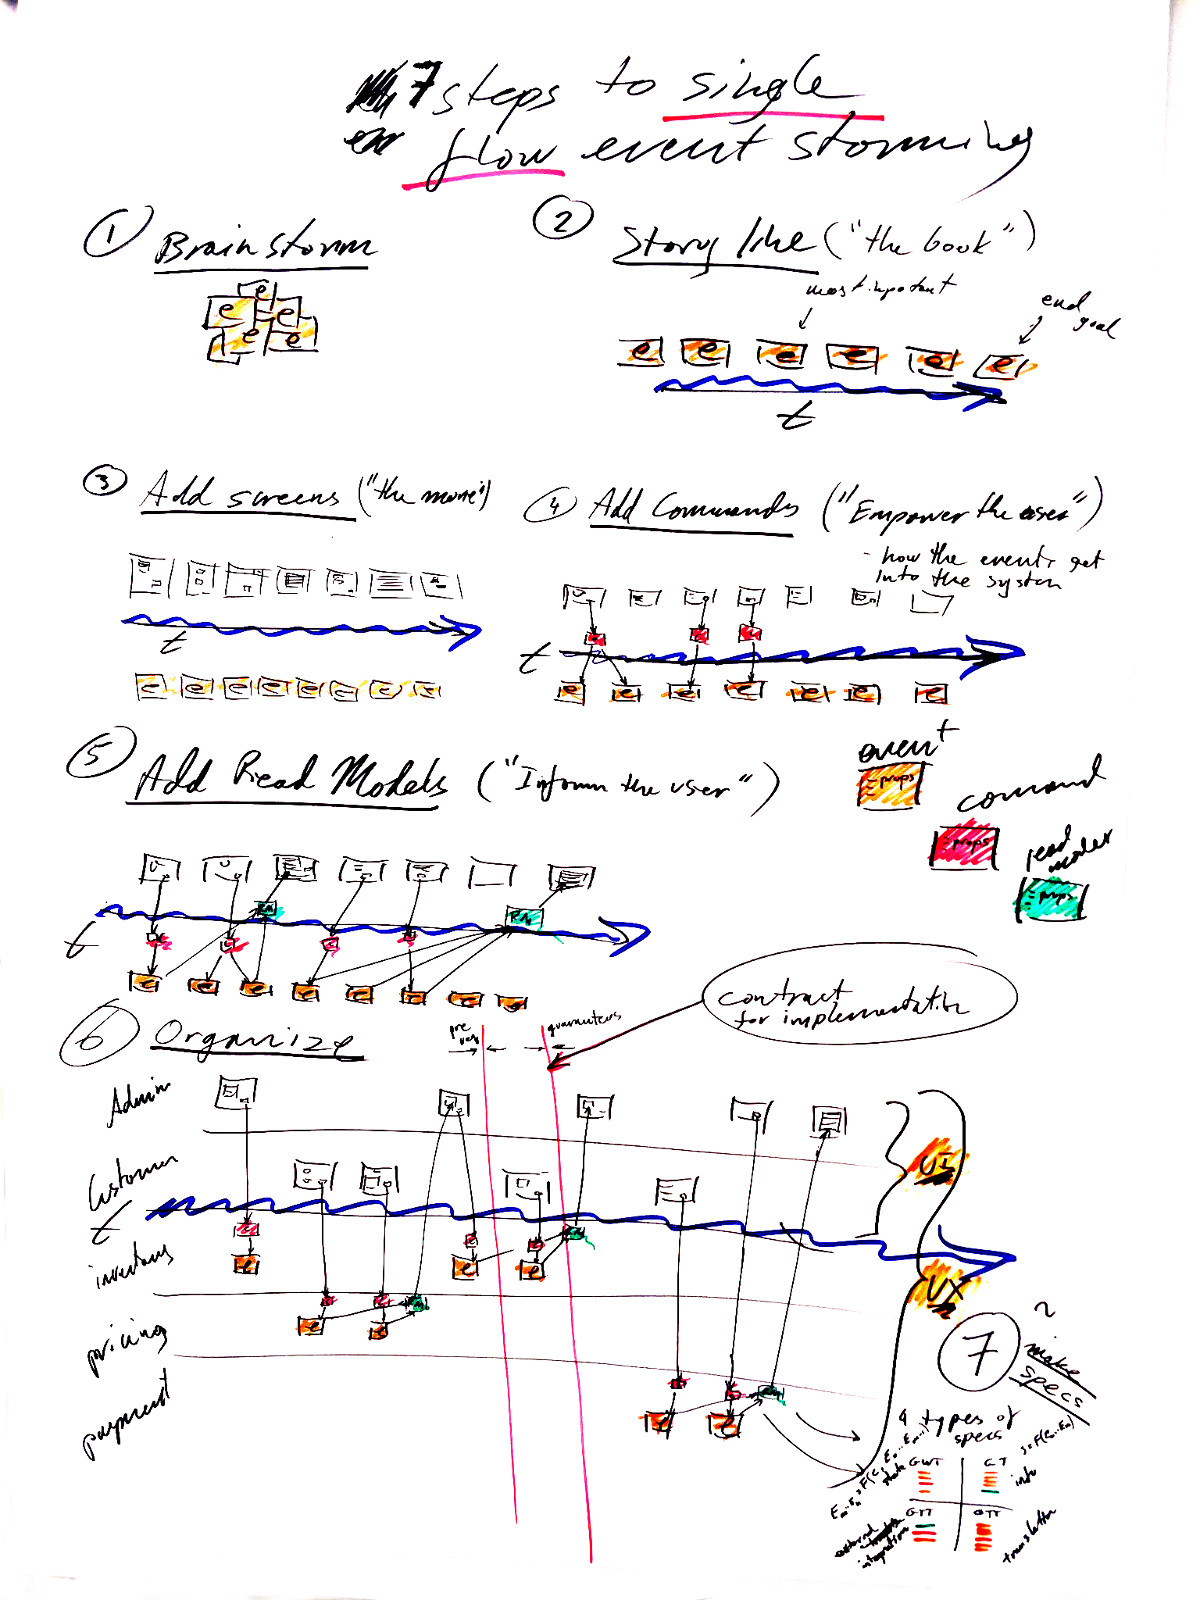 7 steps to single
flow event storming
1 Brainstorm
e
e e
e e
2 Story line ("the book")
most important
end goal
e e e e e e
t
3 Add screens ("the movie")
t
e e e e e e e e
4 Add Commands ("Empower the user")
- how the events get
into the system
t
e e e e e e e
5 Add Read Models ("Inform the user")
event
- props
command
- props
read model
- props
RM RM
t
e e e e e e e e
contract
for implementation
6 Organize
pre
guarantees
Admin
Customer
t
UI
inventory
e e e
UX
pricing
e e
payment
e e
7 make
specs
4 types of
specs
GWT
GT
state
info
external
integration
translator